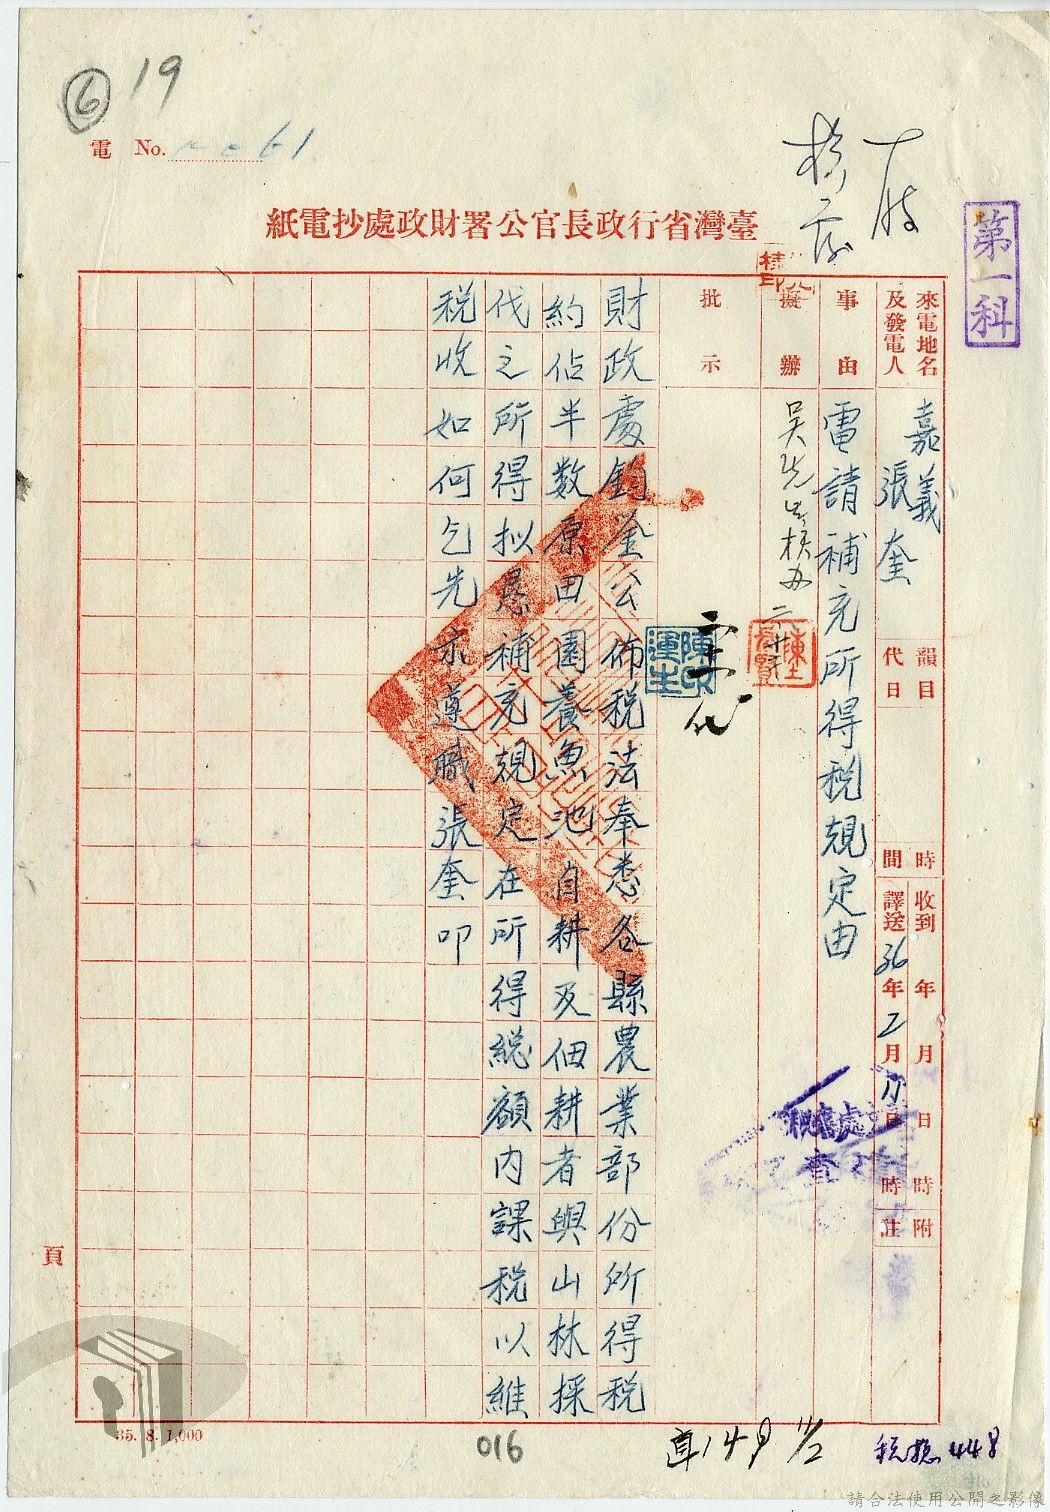 ⑥ 19
電 No. 61
臺灣省行政長官公署財政處抄電紙
第一科
來電地名及發電人
嘉義
張奎
韻目代日
時間
收到 年 月 日 時
譯送 36年 2月 11日 時
附註
事由
電請補充所得稅規定由
擬辦
批示
財政處鈞鑒公佈稅法奉悉各縣農業部份所得稅
約佔半數原田園養魚池自耕及佃耕者與山林採
代之所得拟懇補充規定在所得総額内課稅以維
税收如何乞先示遵職張奎叩
頁
35. 8. 1,000
016
11/2
448
請合法使用公開之影像